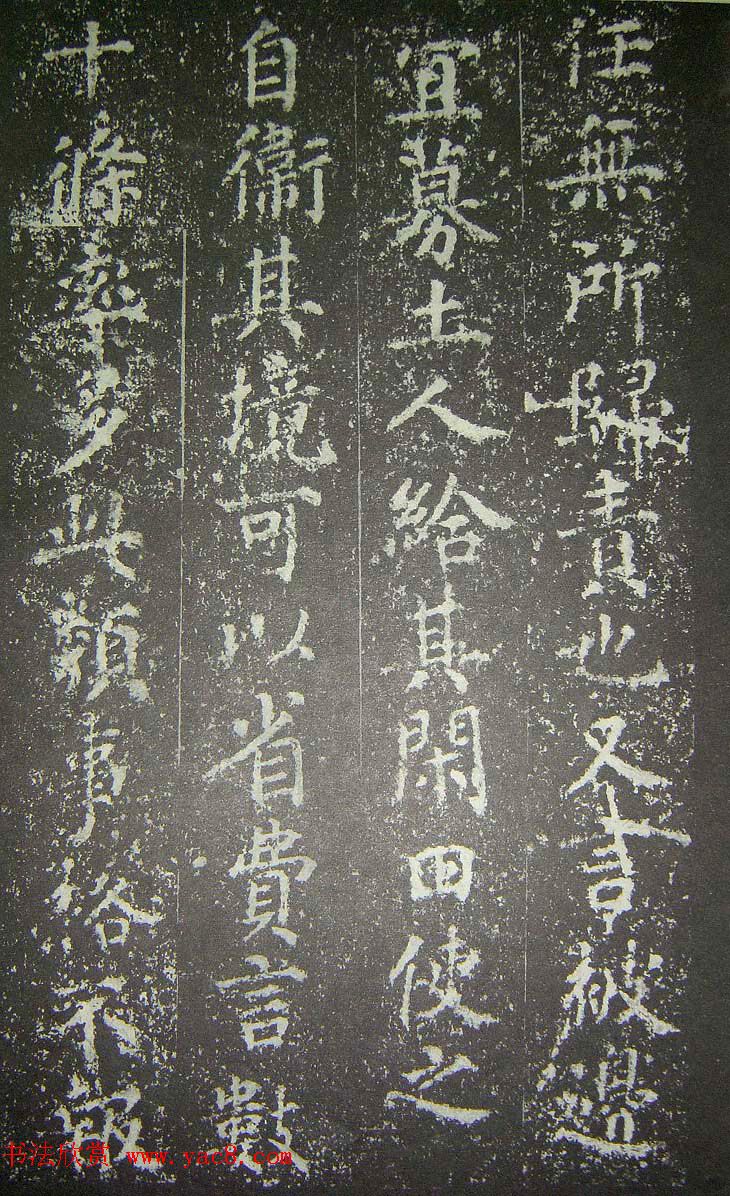 任無所歸責也又言被邊
宜募土人給其閑田使之
自衛其境可以省費言數
十條率多此類事絡不報
书法欣赏 www.yac8.com